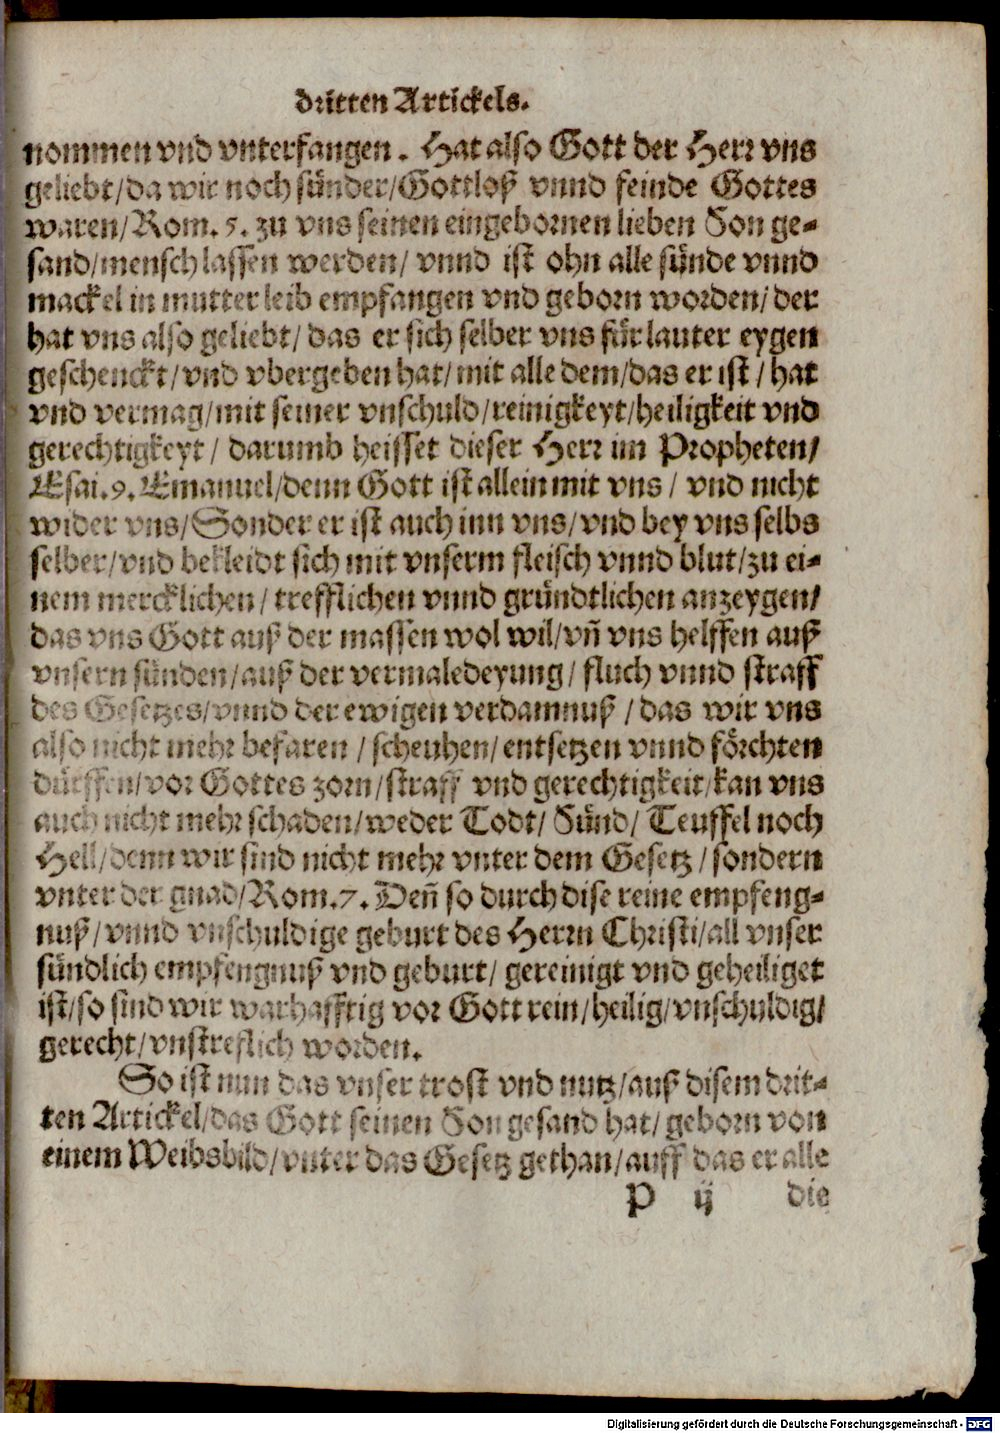 dritten Artickels.
nommen vnd vnterfangen. Hat also Gott der Herr vns
geliebt/da wir noch sünder/Gottloß vnnd feinde Gottes
waren/Rom. 5. zu vns seinen eingebornen lieben Son ge-
sand/mensch lassen werden/ vnnd ist ohn alle sünde vnnd
mackel in mutter leib empfangen vnd geborn worden/der
hat vns also geliebt/ das er sich selber vns für lauter eygen
geschenckt/vnd vbergeben hat/mit alle dem/das er ist/ hat
vnd vermag/mit seiner vnschuld/reinigkeyt/heiligkeit vnd
gerechtigkeyt/ darumb heisset dieser Herr im Propheten/
Esai.9. Emanuel/denn Gott ist allein mit vns/ vnd nicht
wider vns/Sonder er ist auch inn vns/vnd bey vns selbs
selber/vnd bekleidt sich mit vnserm fleisch vnnd blut/zu ei-
nem mercklichen/ trefflichen vnnd gründtlichen anzeygen/
das vns Gott auß der massen wol wil/vñ vns helffen auß
vnsern sünden/auß der vermaledeyung/ fluch vnnd straff
des Gesetzes/vnnd der ewigen verdamnuß/das wir vns
also nicht mehr befaren/scheuhen/entsetzen vnnd förchten
dürffen/vor Gottes zorn/straff vnd gerechtigkeit/kan vns
auch nicht mehr schaden/weder Todt/ Sünd/ Teuffel noch
Hell/denn wir sind nicht mehr vnter dem Gesetz/sondern
vnter der gnad/Rom.7. Deñ so durch dise reine empfeng-
nuß/vnnd vnschuldige geburt des Herrn Christi/all vnser
sündlich empfengnuß vnd geburt/ gereinigt vnd geheiliget
ist/so sind wir warhafftig vor Gott rein/heilig/vnschuldig/
gerecht/vnstreflich worden.
So ist nun das vnser trost vnd nutz/auß disem drit-
ten Artickel/das Gott seinen Son gesand hat/geborn von
einem Weibsbild/vnter das Gesetz gethan/auff das er alle
P ij die
Digitalisierung gefördert durch die Deutsche Forschungsgemeinschaft - DFG